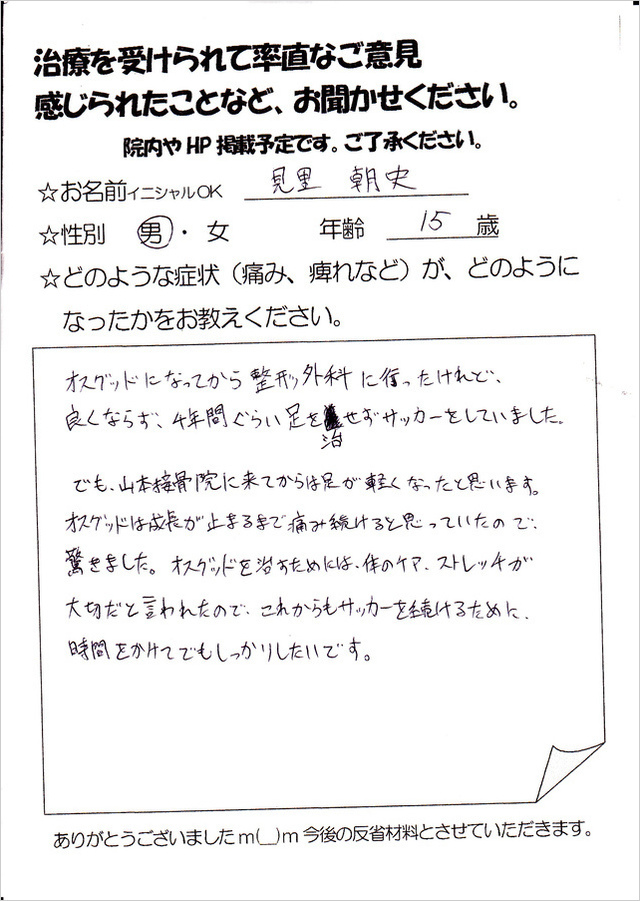 治療を受けられて率直なご意見
感じられたことなど、お聞かせください。
院内やHP掲載予定です。ご了承ください。
☆お名前イニシャルOK 見里 朝史
☆性別 男・女 年齢 15 歳
☆どのような症状（痛み、痺れなど）が、どのように
なったかをお教えください。
オスグッドになってから整形外科に行ったけれど、
良くならず、4年間ぐらい足を治せずサッカーをしていました。
でも、山本接骨院に来てからは足が軽くなったと思います。
オスグッドは成長が止まるまで痛み続けると思っていたので、
驚きました。オスグッドを治すためには、体のケア、ストレッチが
大切だと言われたので、これからもサッカーを続けるために、
時間をかけてでもしっかりしたいです。
ありがとうございましたm(__)m今後の反省材料とさせていただきます。